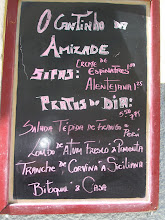 O Cantinho da
Amizade
Sopas: Creme de
Espinafres
Alentejana
Pratos do Dia:
Salada Tépida de Frango
Lombo de Atum Fresco à
Tranche de Corvina à Siciliana
Bitoque à Casa